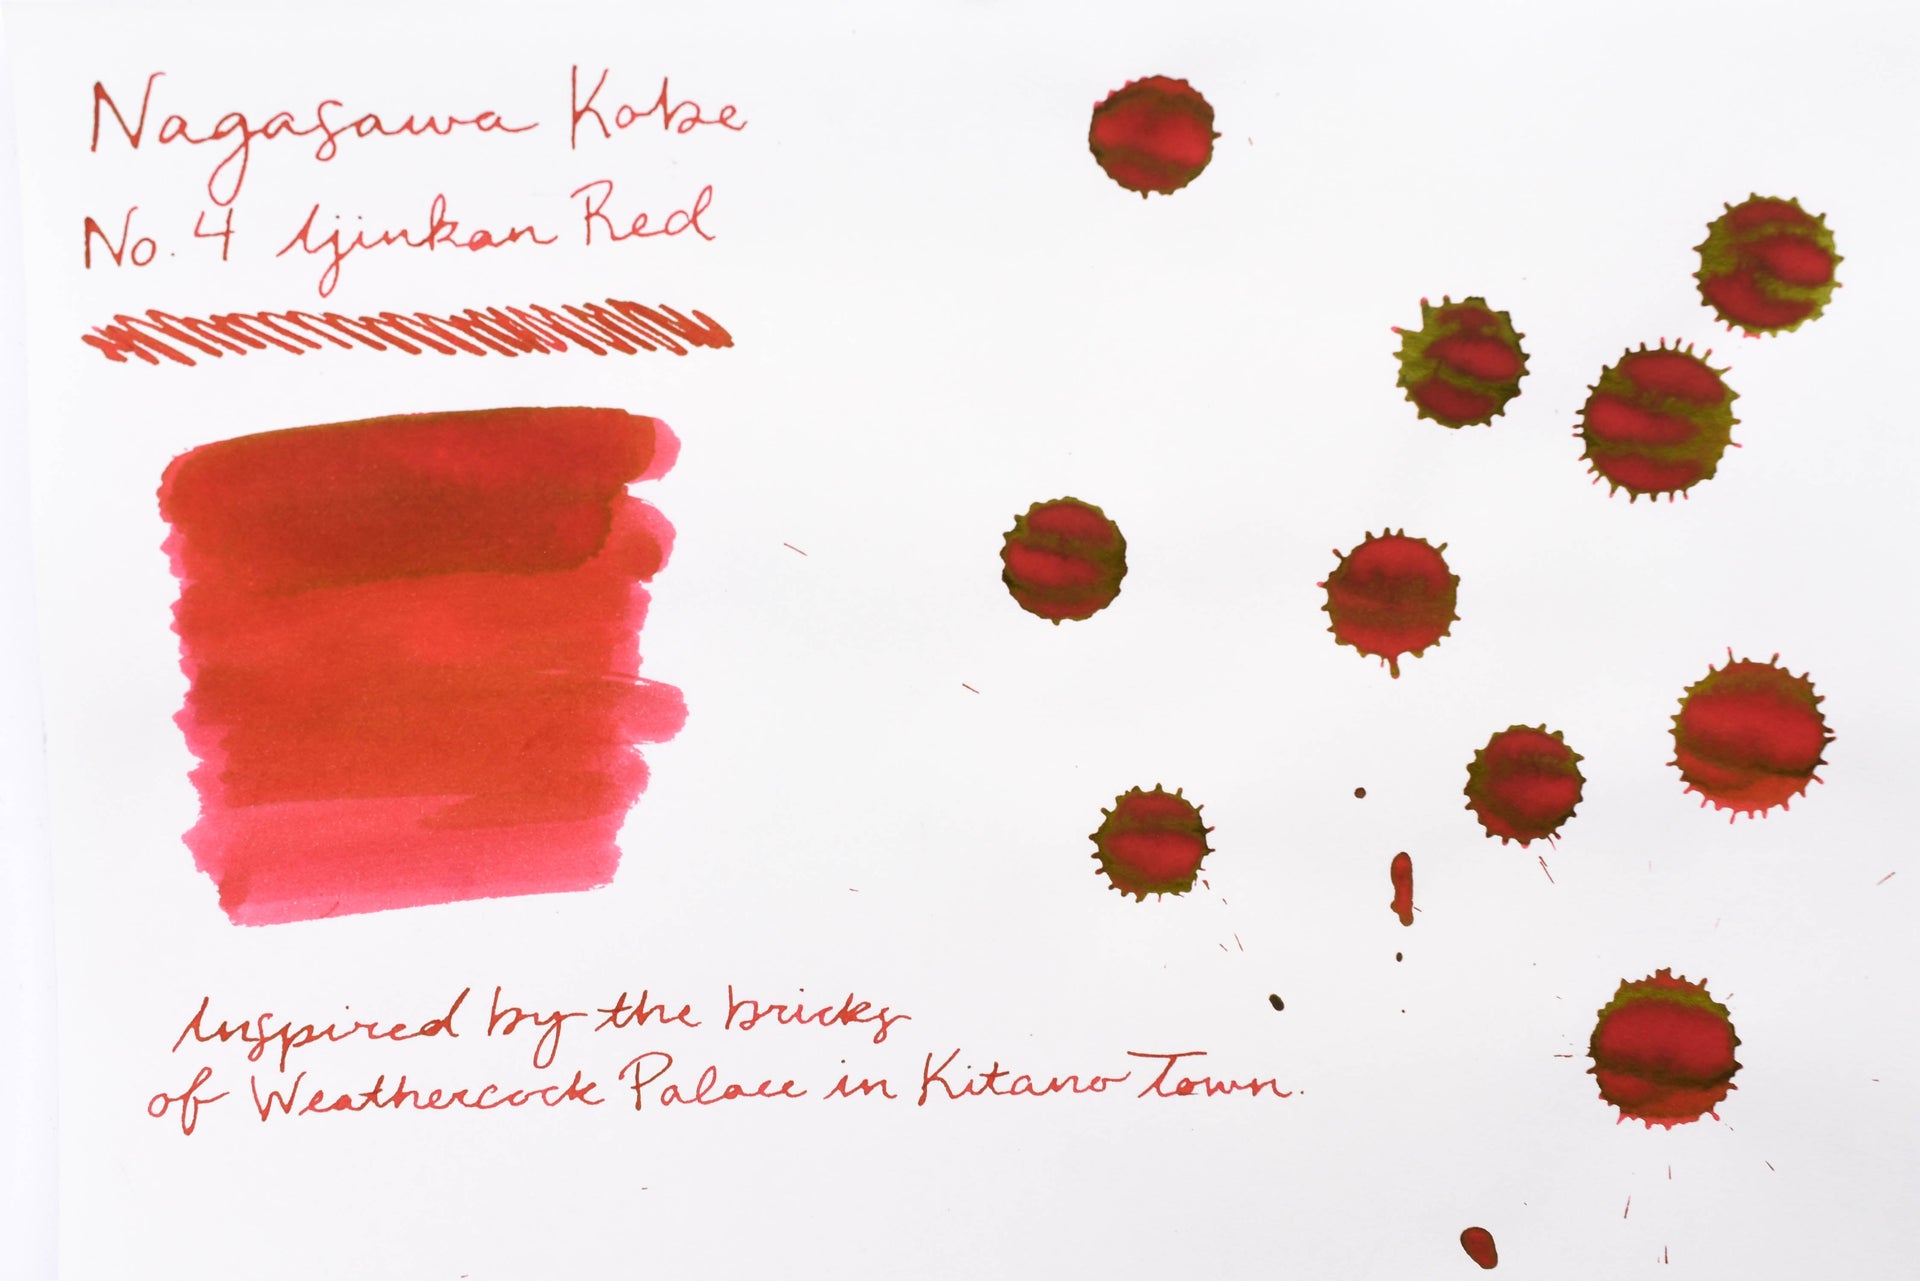 Nagasawa Kobe
No. 4 Ijinkan Red
Inspired by the bricks
of Weathercock Palace in Kitano Town.